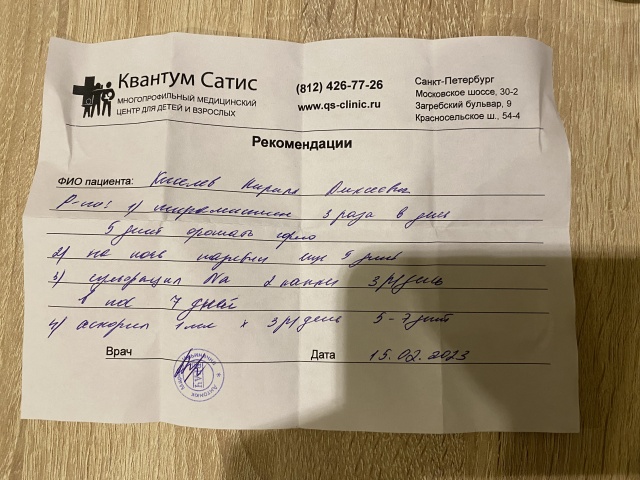 Квантум Сатис
МНОГОПРОФИЛЬНЫЙ МЕДИЦИНСКИЙ
ЦЕНТР ДЛЯ ДЕТЕЙ И ВЗРОСЛЫХ
(812) 426-77-26
www.qs-clinic.ru
Санкт-Петербург
Московское шоссе, 30-2
Загребский бульвар, 9
Красносельское ш., 54-4
Рекомендации
ФИО пациента: Киселев Кирилл
1) мирамистин 3 раза в день
5 дней орошать горло
2) на ночь еще 5 дней
3) сульфацил Na 2 капли 3 р/день
в нос 7 дней
4) аскорил 1 мл x 3 р/день 5-7 дней
Врач
Дата 15.02.2023